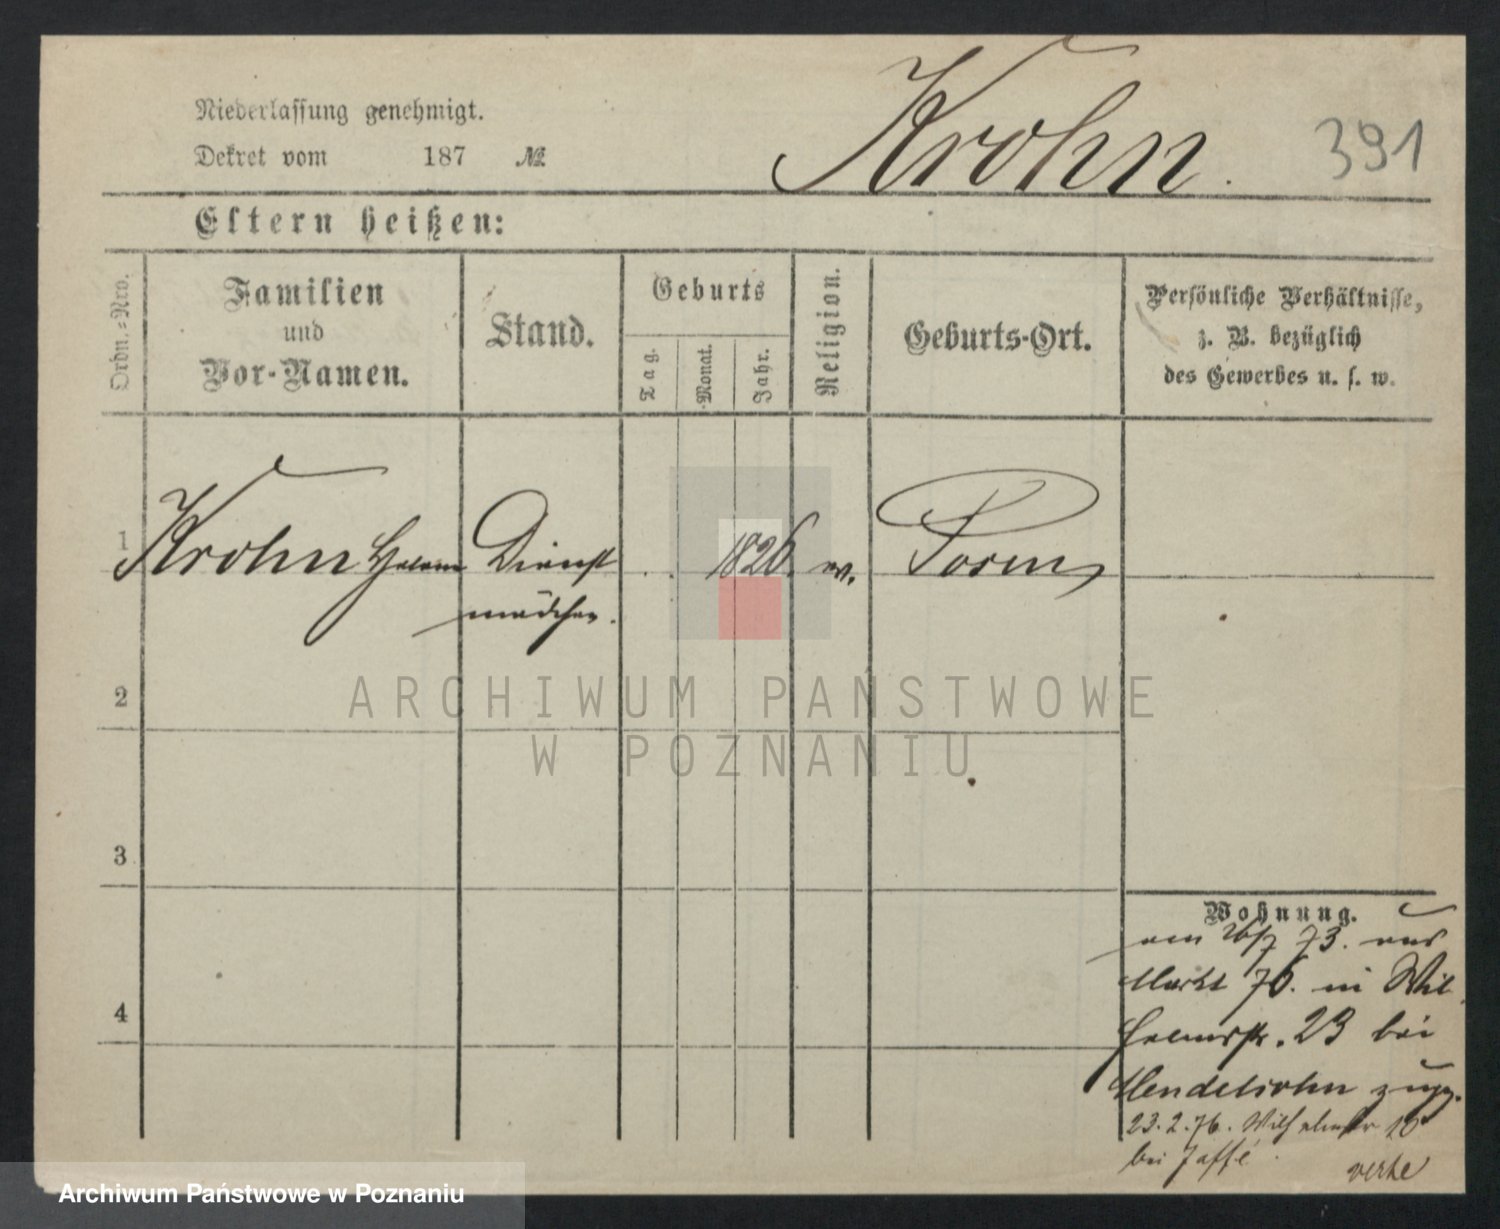 Niederlassung genehmigt.
Dekret vom 187 №
Krohn.
391
Eltern heißen:
Ordn.-Nro.
Familien
und
Vor-Namen.
Stand.
Geburts
Tag.
Monat.
Jahr.
Religion.
Geburts-Ort.
Persönliche Verhältnisse,
z. B. bezüglich
des Gewerbes u. s. w.
1 Krohn Dienst 1826.
mädchen.
2
ARCHIWUM PAŃSTWOWE
W POZNANIU
3
Wohnung.
73. aus
Markt 76. in Wil
helmstr. 23 bei
Mendelsohn zugz.
4
23.2.76. Wilhelmstr 10
bei Jaffé
Archiwum Państwowe w Poznaniu